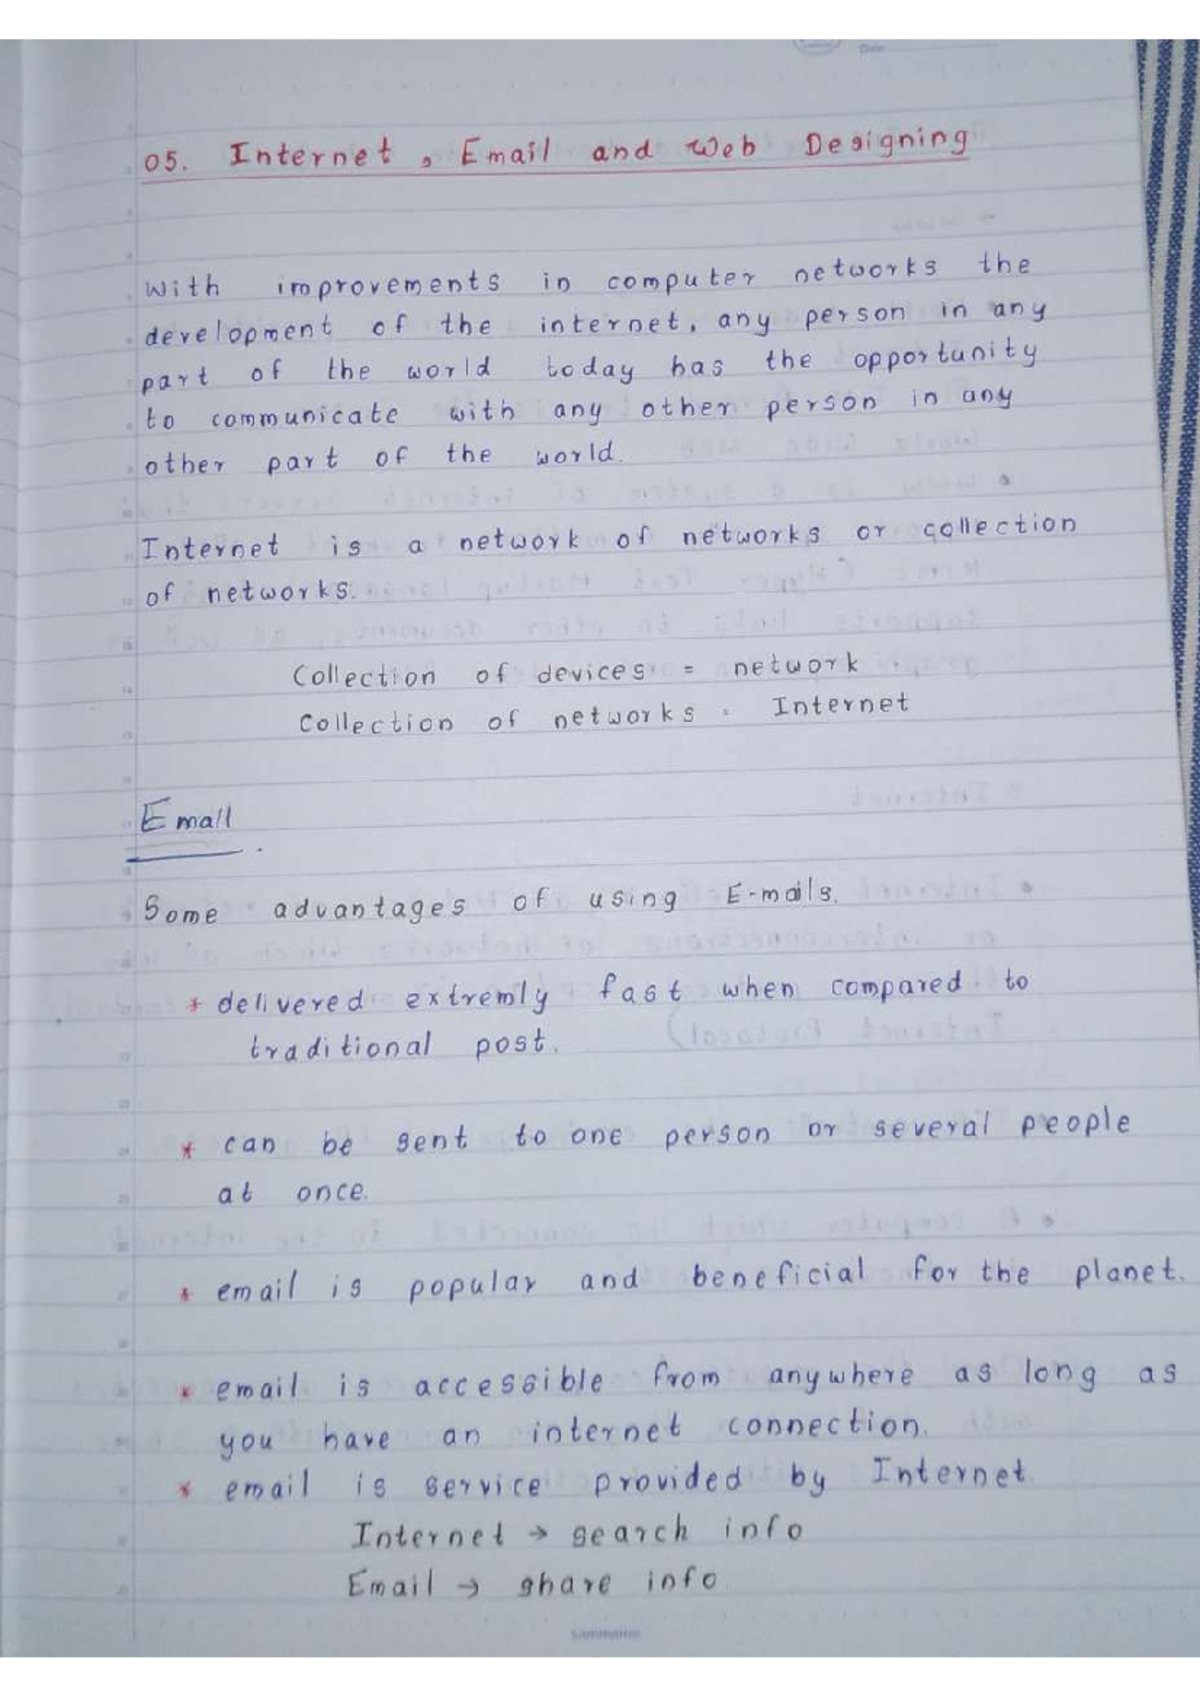 Date
05. Internet, Email and Web Designing
With improvements in computer networks the
development of the internet, any person in any
part of the world today has the opportunity
to communicate with any other person in any
other part of the world.
Internet is a network of networks or collection
of networks.
Collection of devices = network
Collection of networks = Internet
Email
Some advantages of using E-mails.
* delivered extremly fast when compared to
traditional post.
* can be sent to one person or several people
at once.
* email is popular and beneficial for the planet.
* email is accessible from anywhere as long as
you have an internet connection.
* email is service provided by Internet
Internet → search info
Email → share info